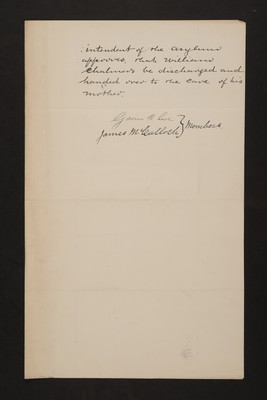 intendent of the asylum
approves, that William
Chalmers be discharged and
handed over to the care of his
mother.
James McCulloch } Members